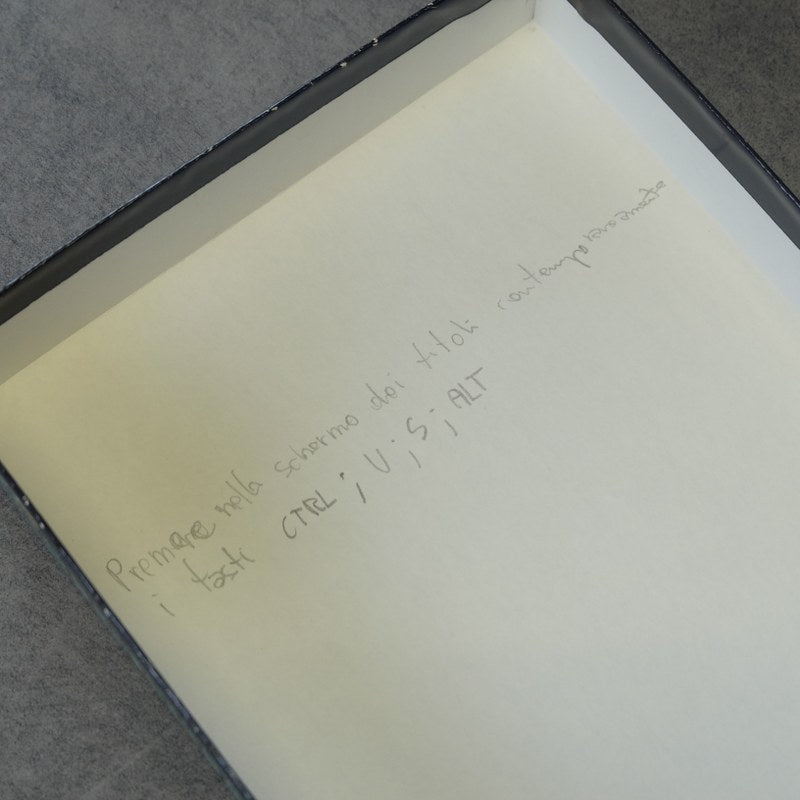 Premere nella schermo dei titoli contemporaneamente
i tasti CTRL ; U ; S ; ALT